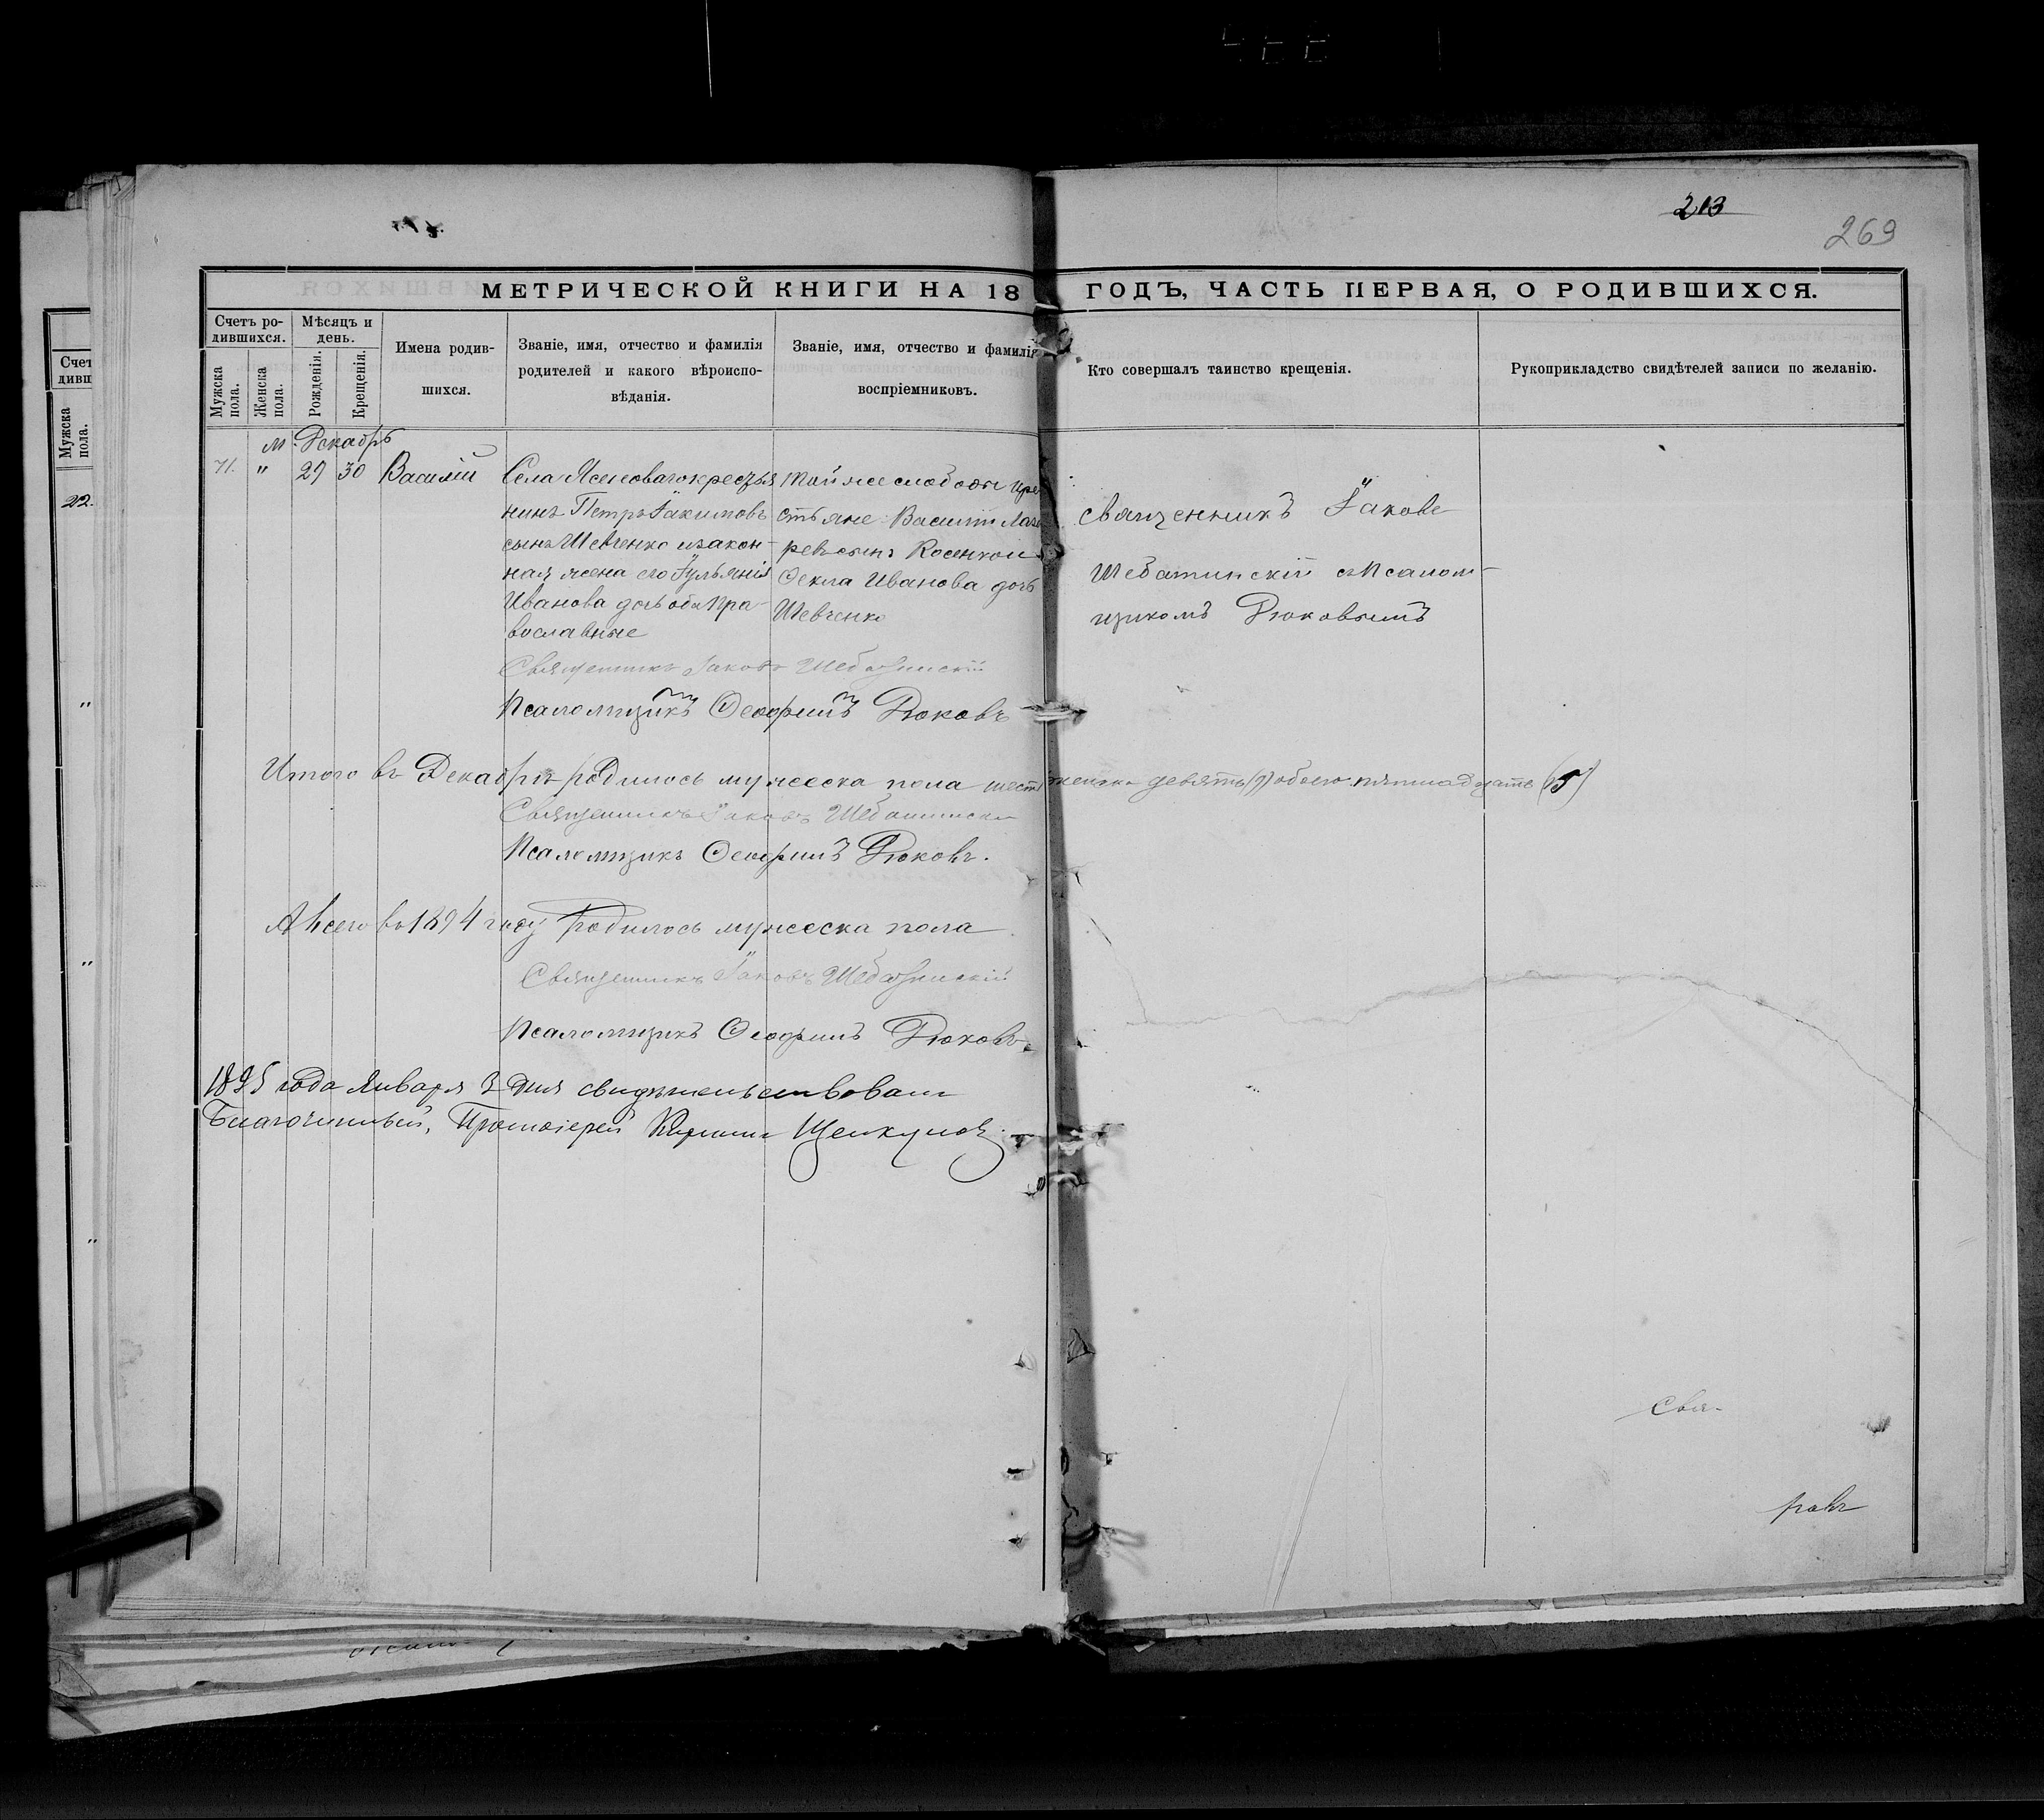 213
269
МЕТРИЧЕСКОЙ КНИГИ НА 18 ГОДЪ, ЧАСТЬ ПЕРВАЯ, О РОДИВШИХСЯ.
Счетъ ро-
дившихся.
Мужска
пола.
Женска
пола.
Мѣсяцъ и
день.
Рожденія.
Крещенія.
Имена родив-
шихся.
Званіе, имя, отчество и фамилія
родителей и какого вѣроиспо-
вѣданія.
Званіе, имя, отчество и фамилія
воспріемниковъ.
Кто совершалъ таинство крещенія.
Рукоприкладство свидѣтелей записи по желанію.
Счет
дивш
Мужска
пола.
22.
м. Декабрь
71. " 29 30 Василій
Села Ясеноваго крестья
нинъ Петръ Іакимовъ
сынъ Шевченко и закон-
ная жена его Іульянія
Иванова дочь оба пра-
вославные
Той же слободы кре
стьяне Василій Лаза
ревъ сынъ Косенко и
Ѳекла Иванова дочь
Шевченко
Священникъ Іаковъ
Шебатинскій съ Псалом-
щикомъ Рюковымъ
Священникъ Іаковъ Шебатинскій
Псаломщикъ Ѳеофилъ Рюковъ
Итого въ Декабрѣ родилось мужеска пола шесть женска девять (9) обоего пятнадцать (15)
Священникъ Іаковъ Шебатинскій
Псаломщикъ Ѳеофилъ Рюковъ.
А всего въ 1894 году родилось мужеска пола
Священникъ Іаковъ Шебатинскій
Псаломщикъ Ѳеофилъ Рюковъ.
1895 года Января 3 дня свидѣтельствовалъ
Благочинный, Протоіерей Щелкуновъ.
Свя-
ковъ